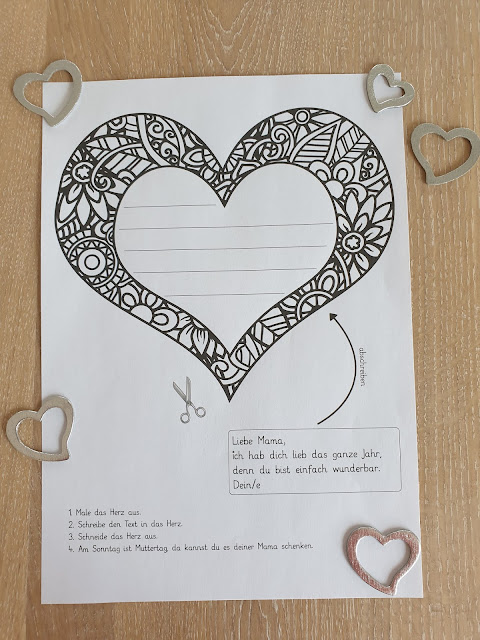 abschreiben
Liebe Mama,
ich hab dich lieb das ganze Jahr,
denn du bist einfach wunderbar.
Dein/e
1. Male das Herz aus.
2. Schreibe den Text in das Herz.
3. Schneide das Herz aus.
4. Am Sonntag ist Muttertag, da kannst du es deiner Mama schenken.